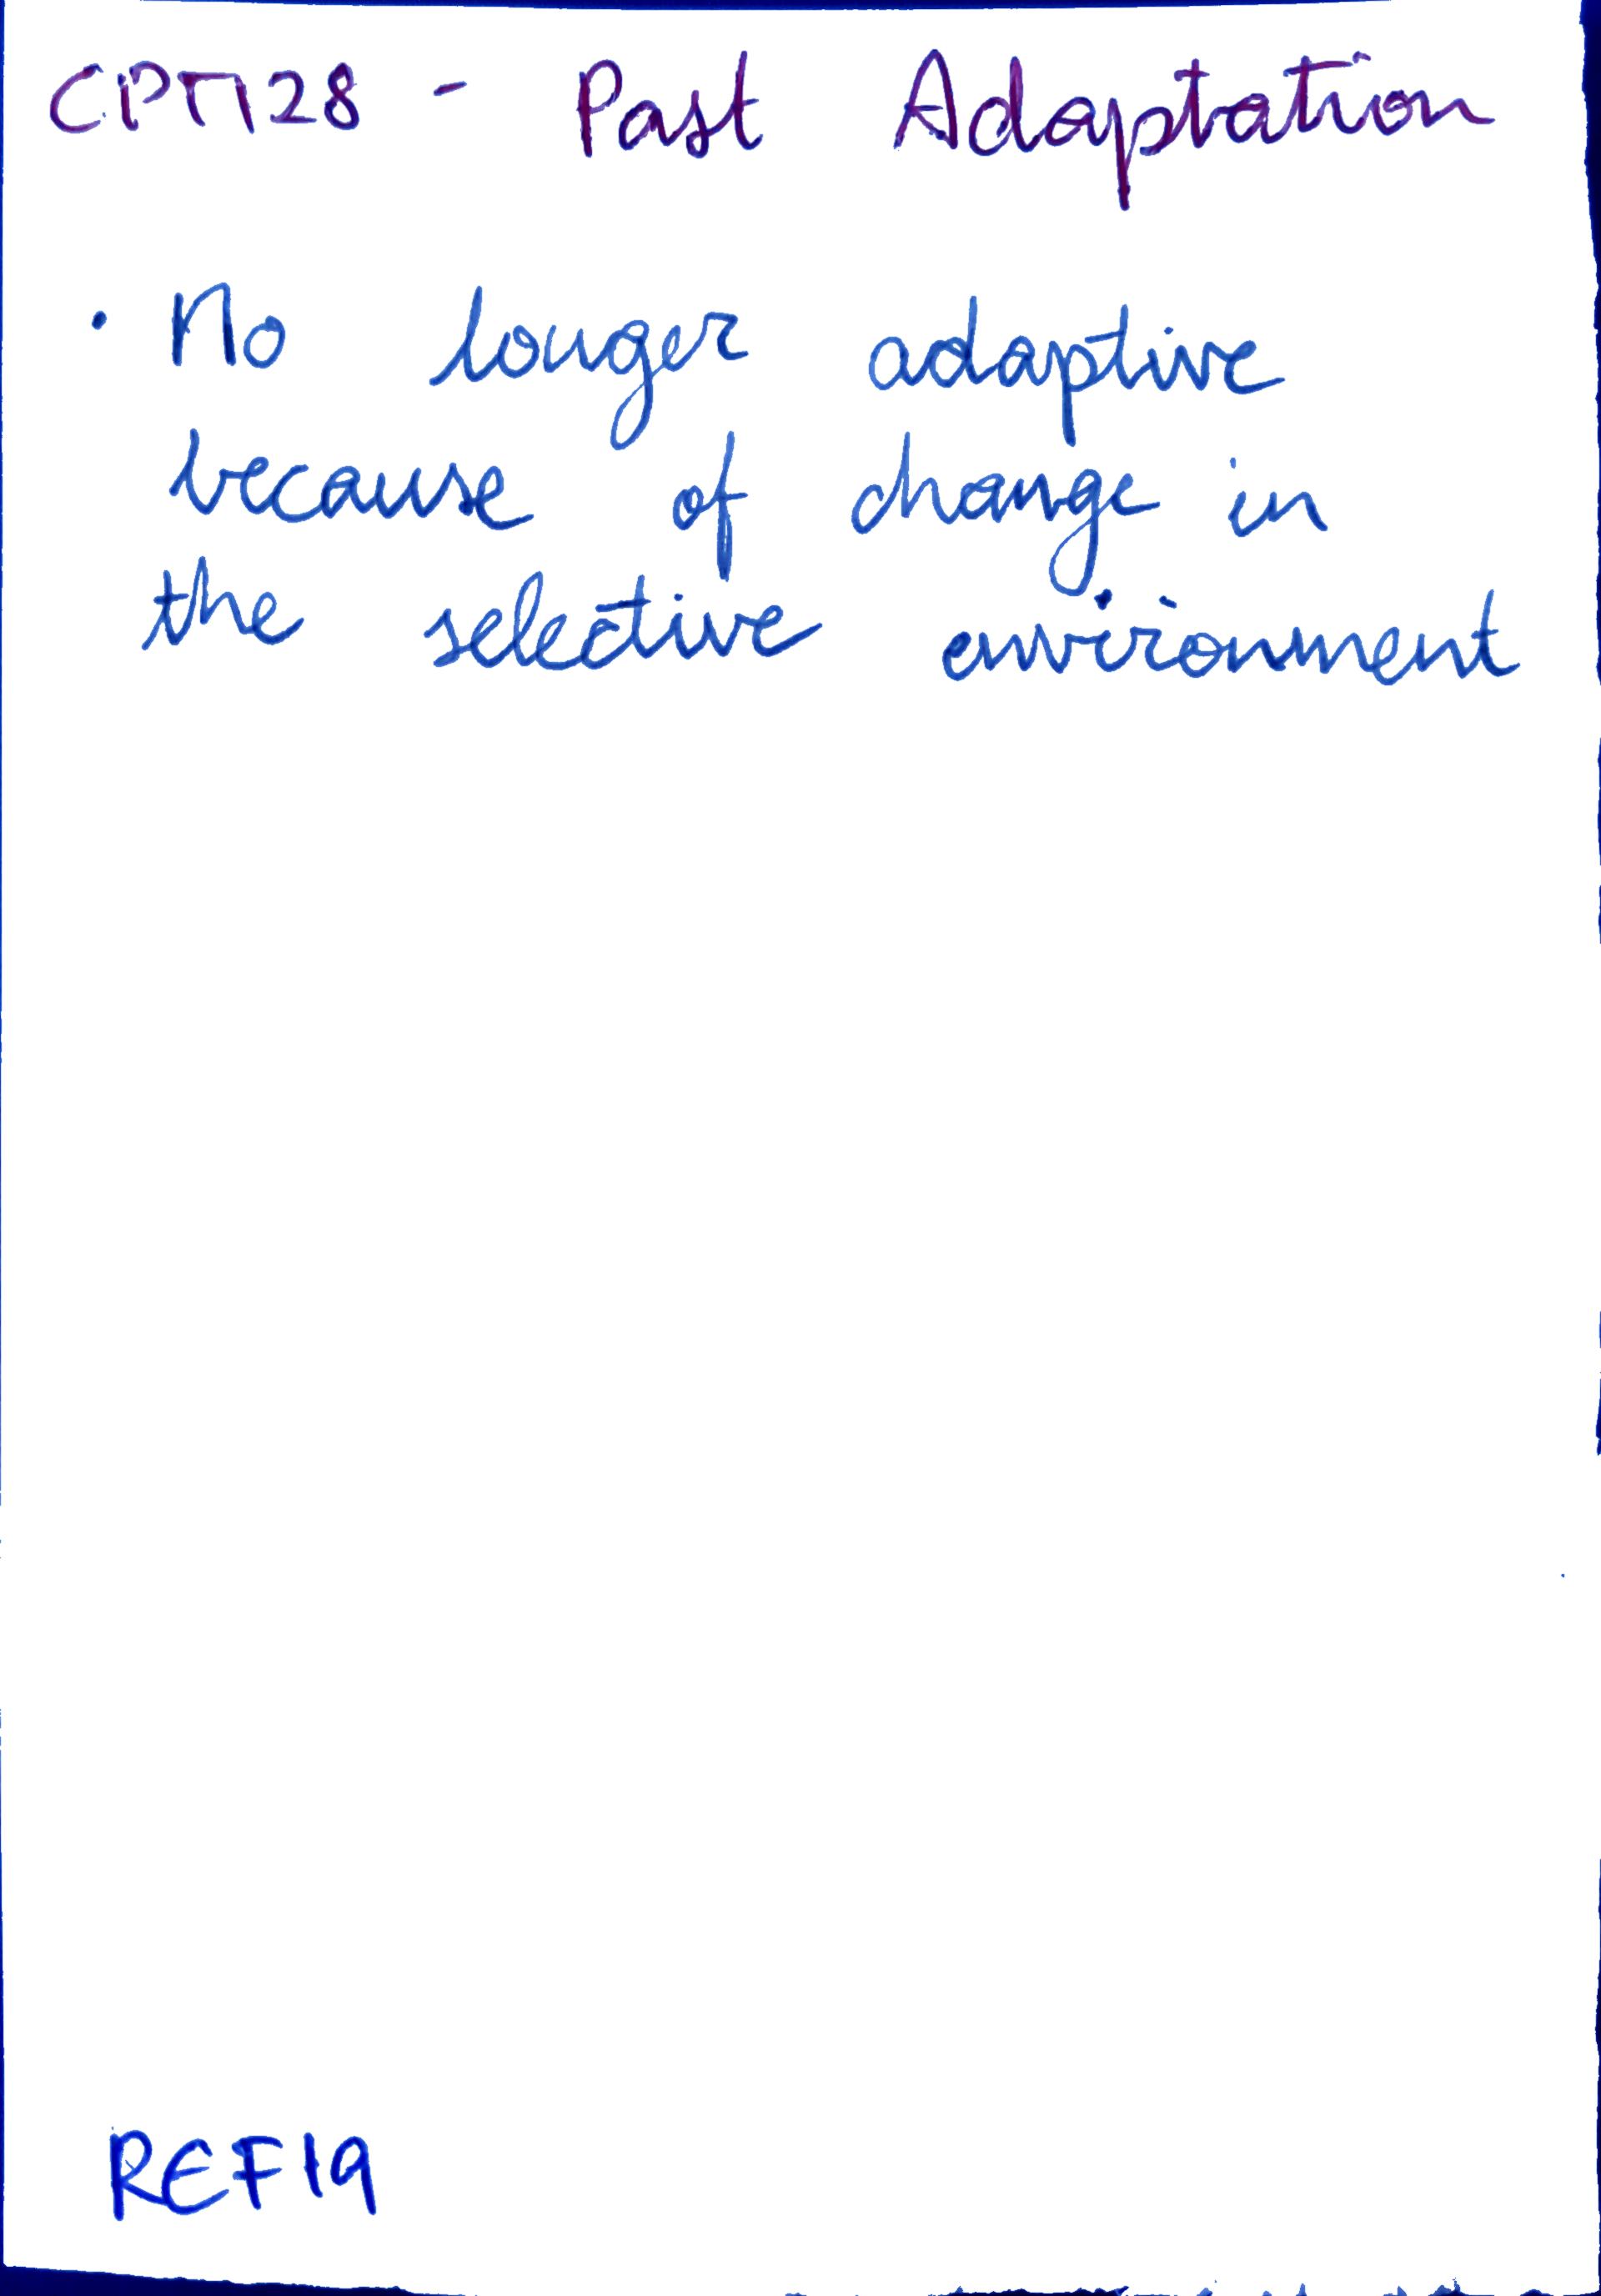 CPT128 - Past Adaptation
• No longer adaptive
because of change in
the selective environment
REF19